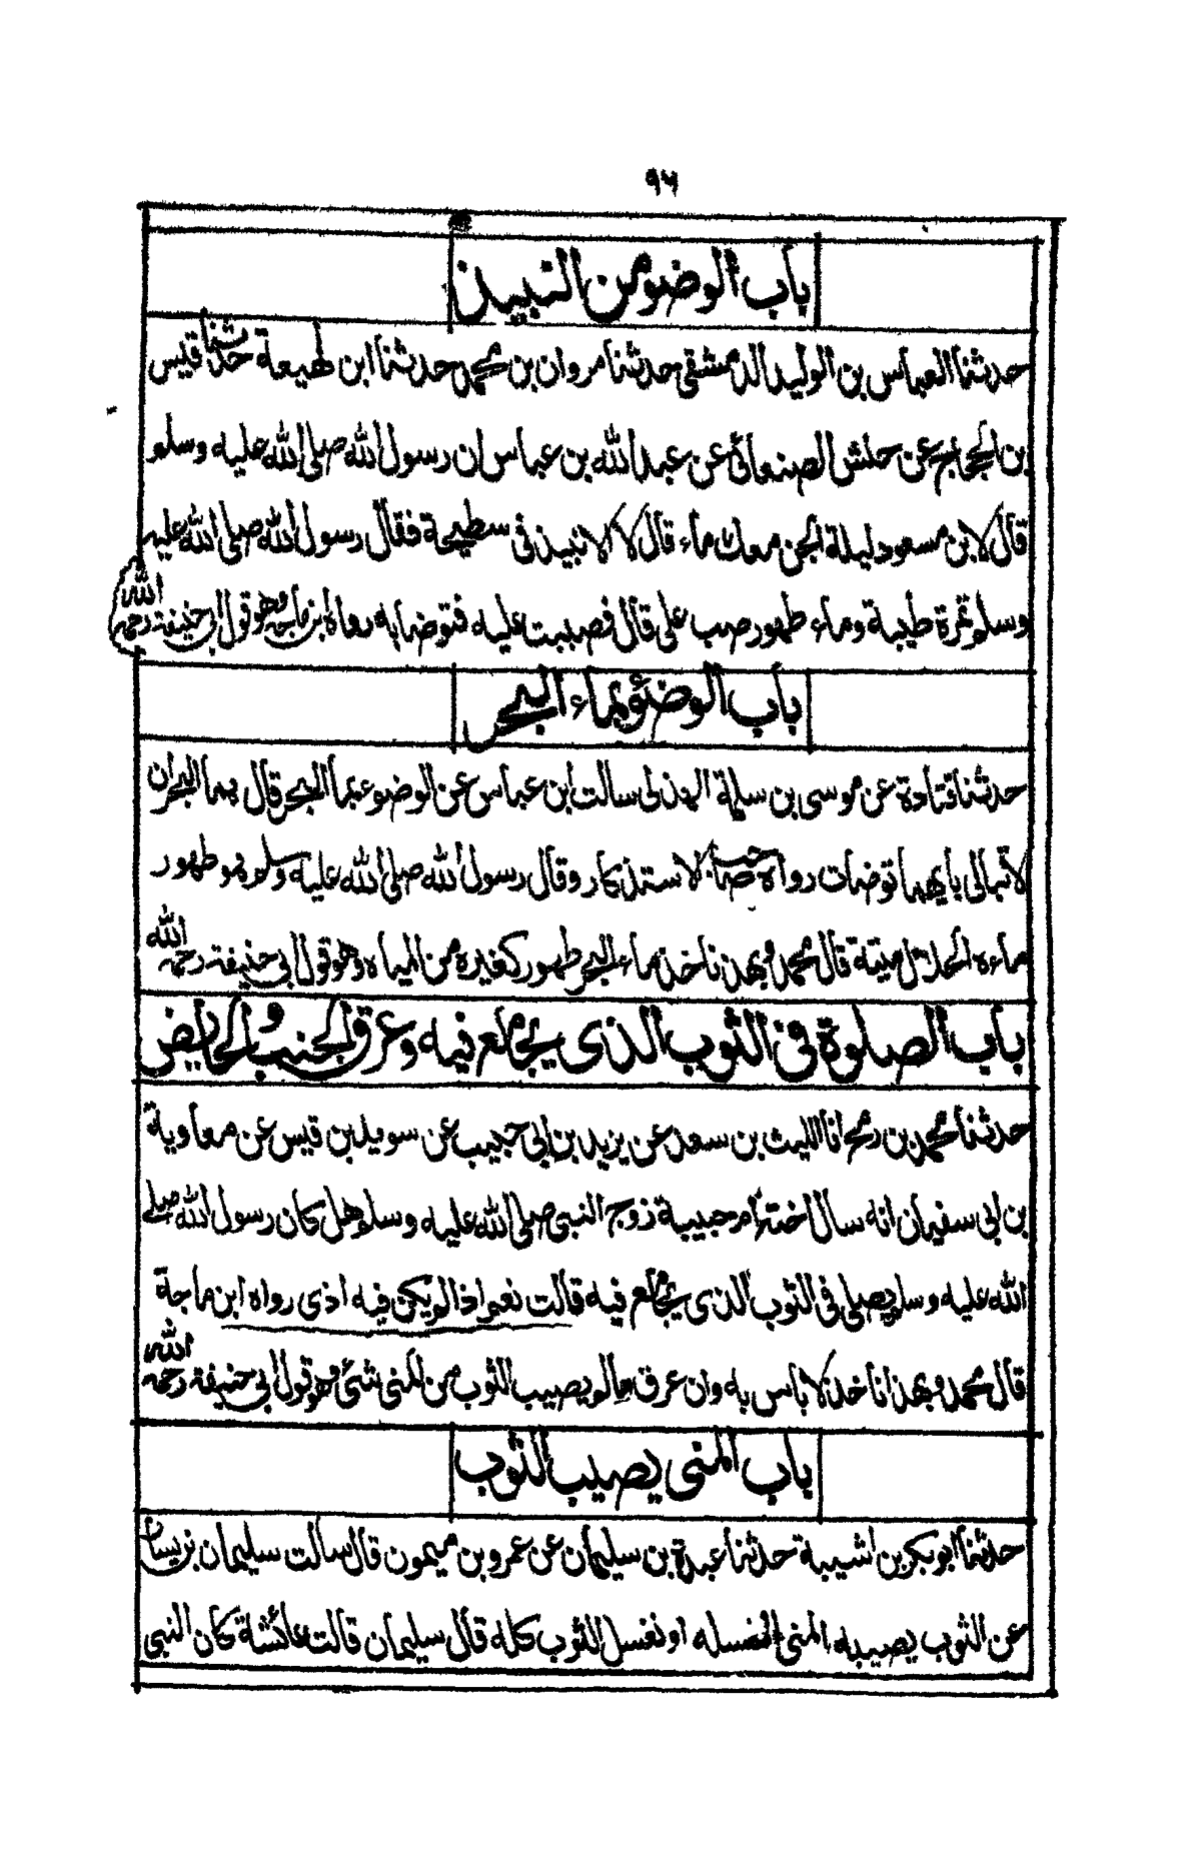 ٩٦
باب الوضو من النبيذ
حدثنا العباس بن الوليد الدمشقى حدثنا مروان بن محمد حدثنا ابن لهيعة حدثنا قيس
بن الحجاج عن حنش الصنعانى عن عبد الله بن عباس ان رسول الله صلى الله عليه وسلم
قال لابن مسعود ليلة الجن معك ماء قال لا الا نبيذ فى سطيحة فقال رسول الله صلى الله عليه
وسلم تمرة طيبة وماء طهور صب على قال فصببت عليه فتوضأ به رواه ابن ماجه وهو قول ابى حنيفة رحمه الله
باب الوضئو بماء البحر
حدثنا قتادة عن موسى بن سلمة الهذلى سالت ابن عباس عن الوضو عبما البحر قال هما البحران
لا تبالى بايهما توضات رواه صاحب الاستذكار وقال رسول الله صلى الله عليه وسلم هو طهور
ماءه الحل ميتة قال محمد وبهذ ناخذ ماء البحر طهور كغيره من المياه وهو قول ابى حنيفة رحمه الله
باب الصلوة فى الثوب الذى يجامع فيه وعرق الجنب والحايض
حدثنا محمد بن رمح انا الليث بن سعد عن يزيد بن ابى حبيب عن سويد بن قيس عن معاوية
بن ابى سفيان انه سال اخته ام حبيبة زوج النبى صلى الله عليه وسلم هل كان رسول الله صلى
الله عليه وسلم يصلى فى الثوب الذى يجامع فيه قالت نعم اذا لم يكن فيه اذى رواه ابن ماجة
قال محمد وبهذا ناخذ لا باس به وان عرق مالم يصيب الثوب من المنى شئ وهو قول ابى حنيفة رحمه الله
باب المنى يصيب الثوب
حدثنا ابو بكر بن اشيبة حدثنا عبدة بن سليمان عن عمرو بن ميمون قال سالت سليمان بن يسار
عن الثوب يصيبه المنى انغسله او نغسل الثوب كله قال سليمان قالت عائشة كان النبى